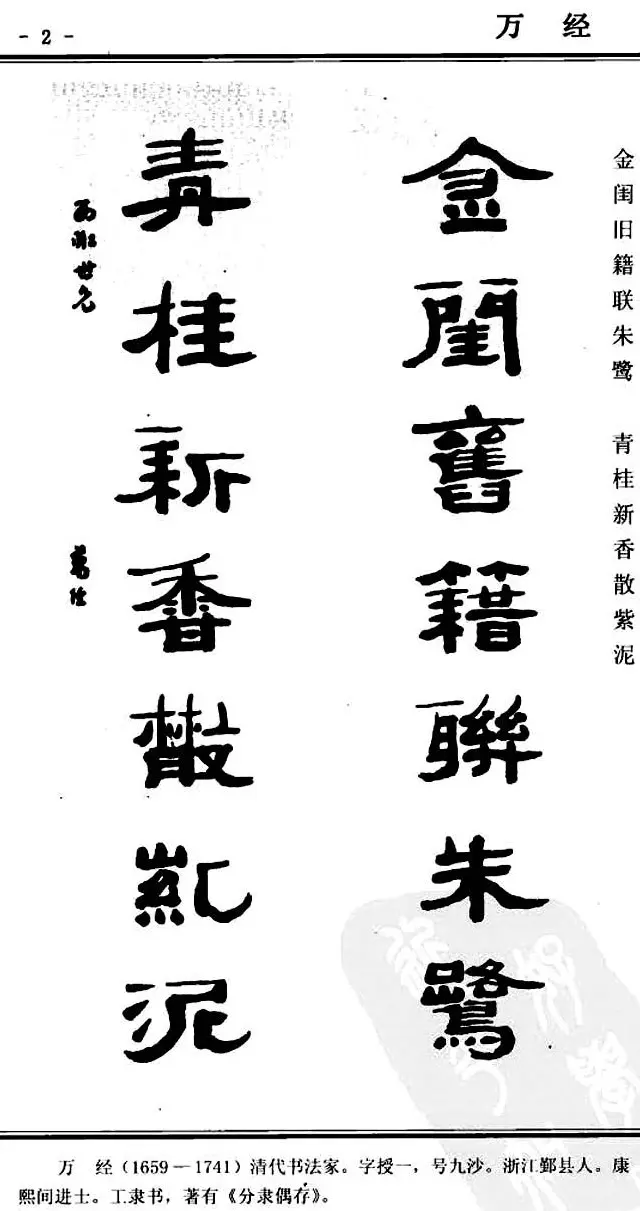 - 2 -
万 经
金闺旧籍联朱鹭 青桂新香散紫泥
金閨舊籍聯朱鷺
青桂新香散紫泥
世兄
萬经
万 经(1659—1741)清代书法家。字授一,号九沙。浙江鄞县人。康
熙间进士。工隶书,著有《分隶偶存》。